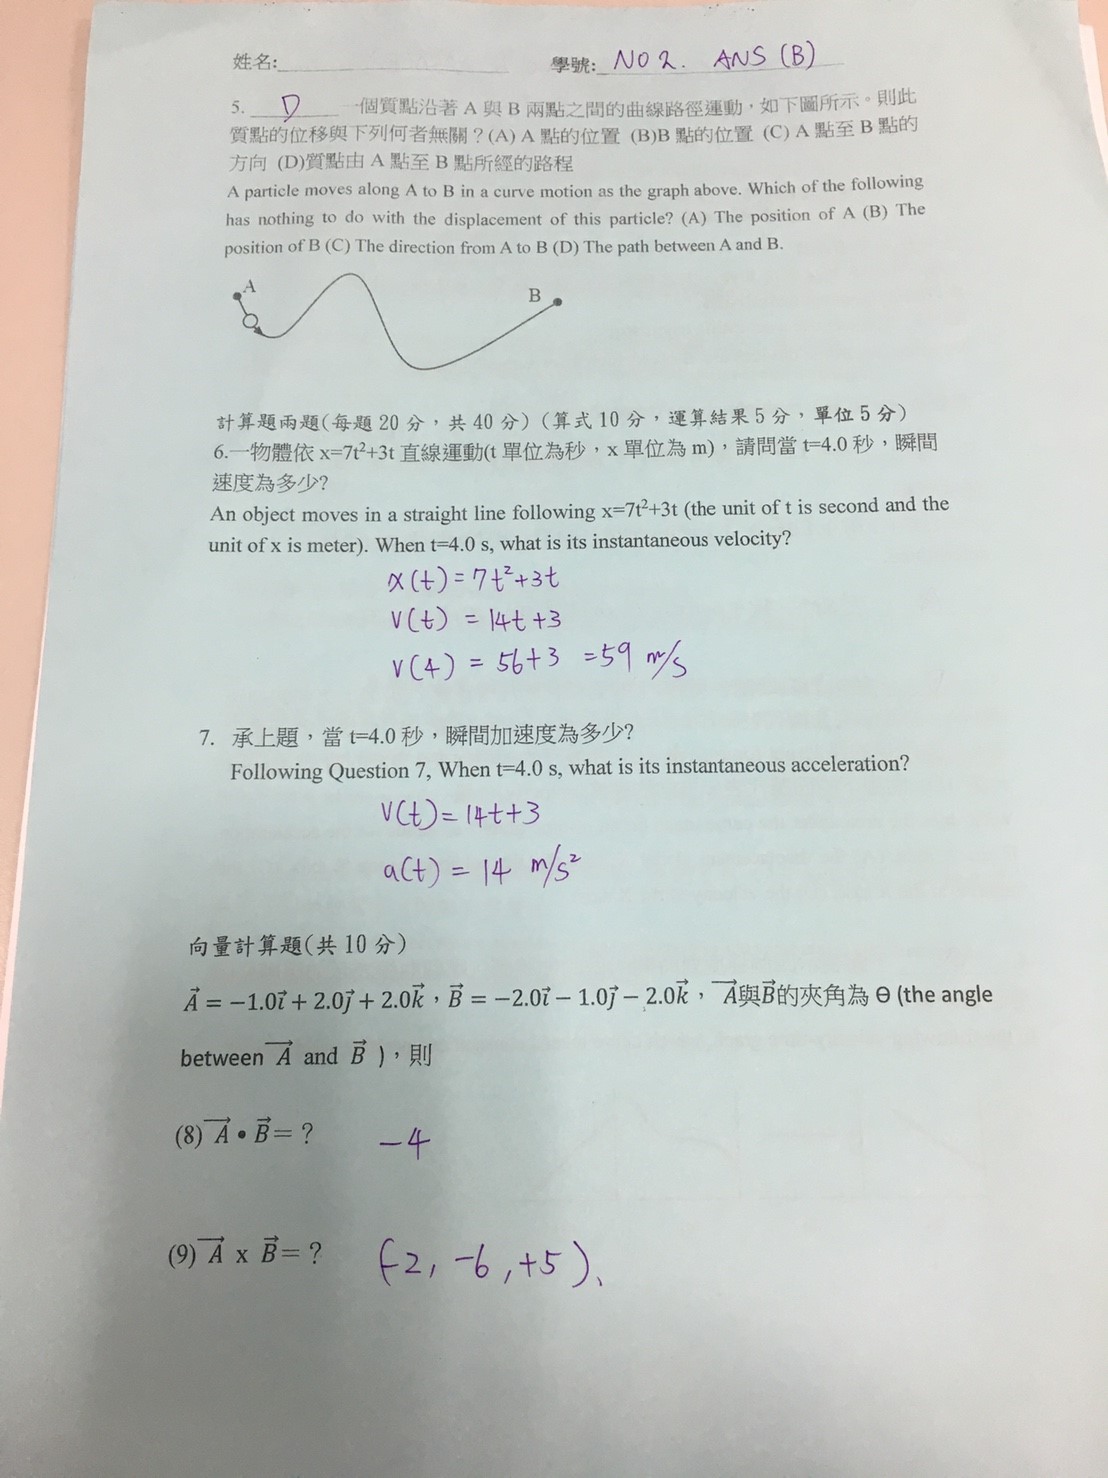 姓名:____________ 學號: NO 2. ANS (B)
5. D 一個質點沿著 A 與 B 兩點之間的曲線路徑運動，如下圖所示。則此
質點的位移與下列何者無關？(A) A 點的位置 (B)B 點的位置 (C) A 點至 B 點的
方向 (D)質點由 A 點至 B 點所經的路程
A particle moves along A to B in a curve motion as the graph above. Which of the following
has nothing to do with the displacement of this particle? (A) The position of A (B) The
position of B (C) The direction from A to B (D) The path between A and B.
A
B
計算題兩題(每題 20 分，共 40 分)（算式 10 分，運算結果 5 分，單位 5 分）
6.一物體依 x=7t²+3t 直線運動(t 單位為秒，x 單位為 m)，請問當 t=4.0 秒，瞬間
速度為多少?
An object moves in a straight line following x=7t²+3t (the unit of t is second and the
unit of x is meter). When t=4.0 s, what is its instantaneous velocity?
x(t) = 7t²+3t
v(t) = 14t+3
v(4) = 56+3 =59 m/s
7. 承上題，當 t=4.0 秒，瞬間加速度為多少?
Following Question 7, When t=4.0 s, what is its instantaneous acceleration?
v(t)=14t+3
a(t) = 14 m/s²
向量計算題(共 10 分)
A⃗ = −1.0i⃗ + 2.0j⃗ + 2.0k⃗，B⃗ = −2.0i⃗ − 1.0j⃗ − 2.0k⃗，A⃗與B⃗的夾角為 Θ (the angle
between A⃗ and B⃗ )，則
(8) A⃗ • B⃗ = ? −4
(9) A⃗ x B⃗ = ? (-2, -6, +5)、